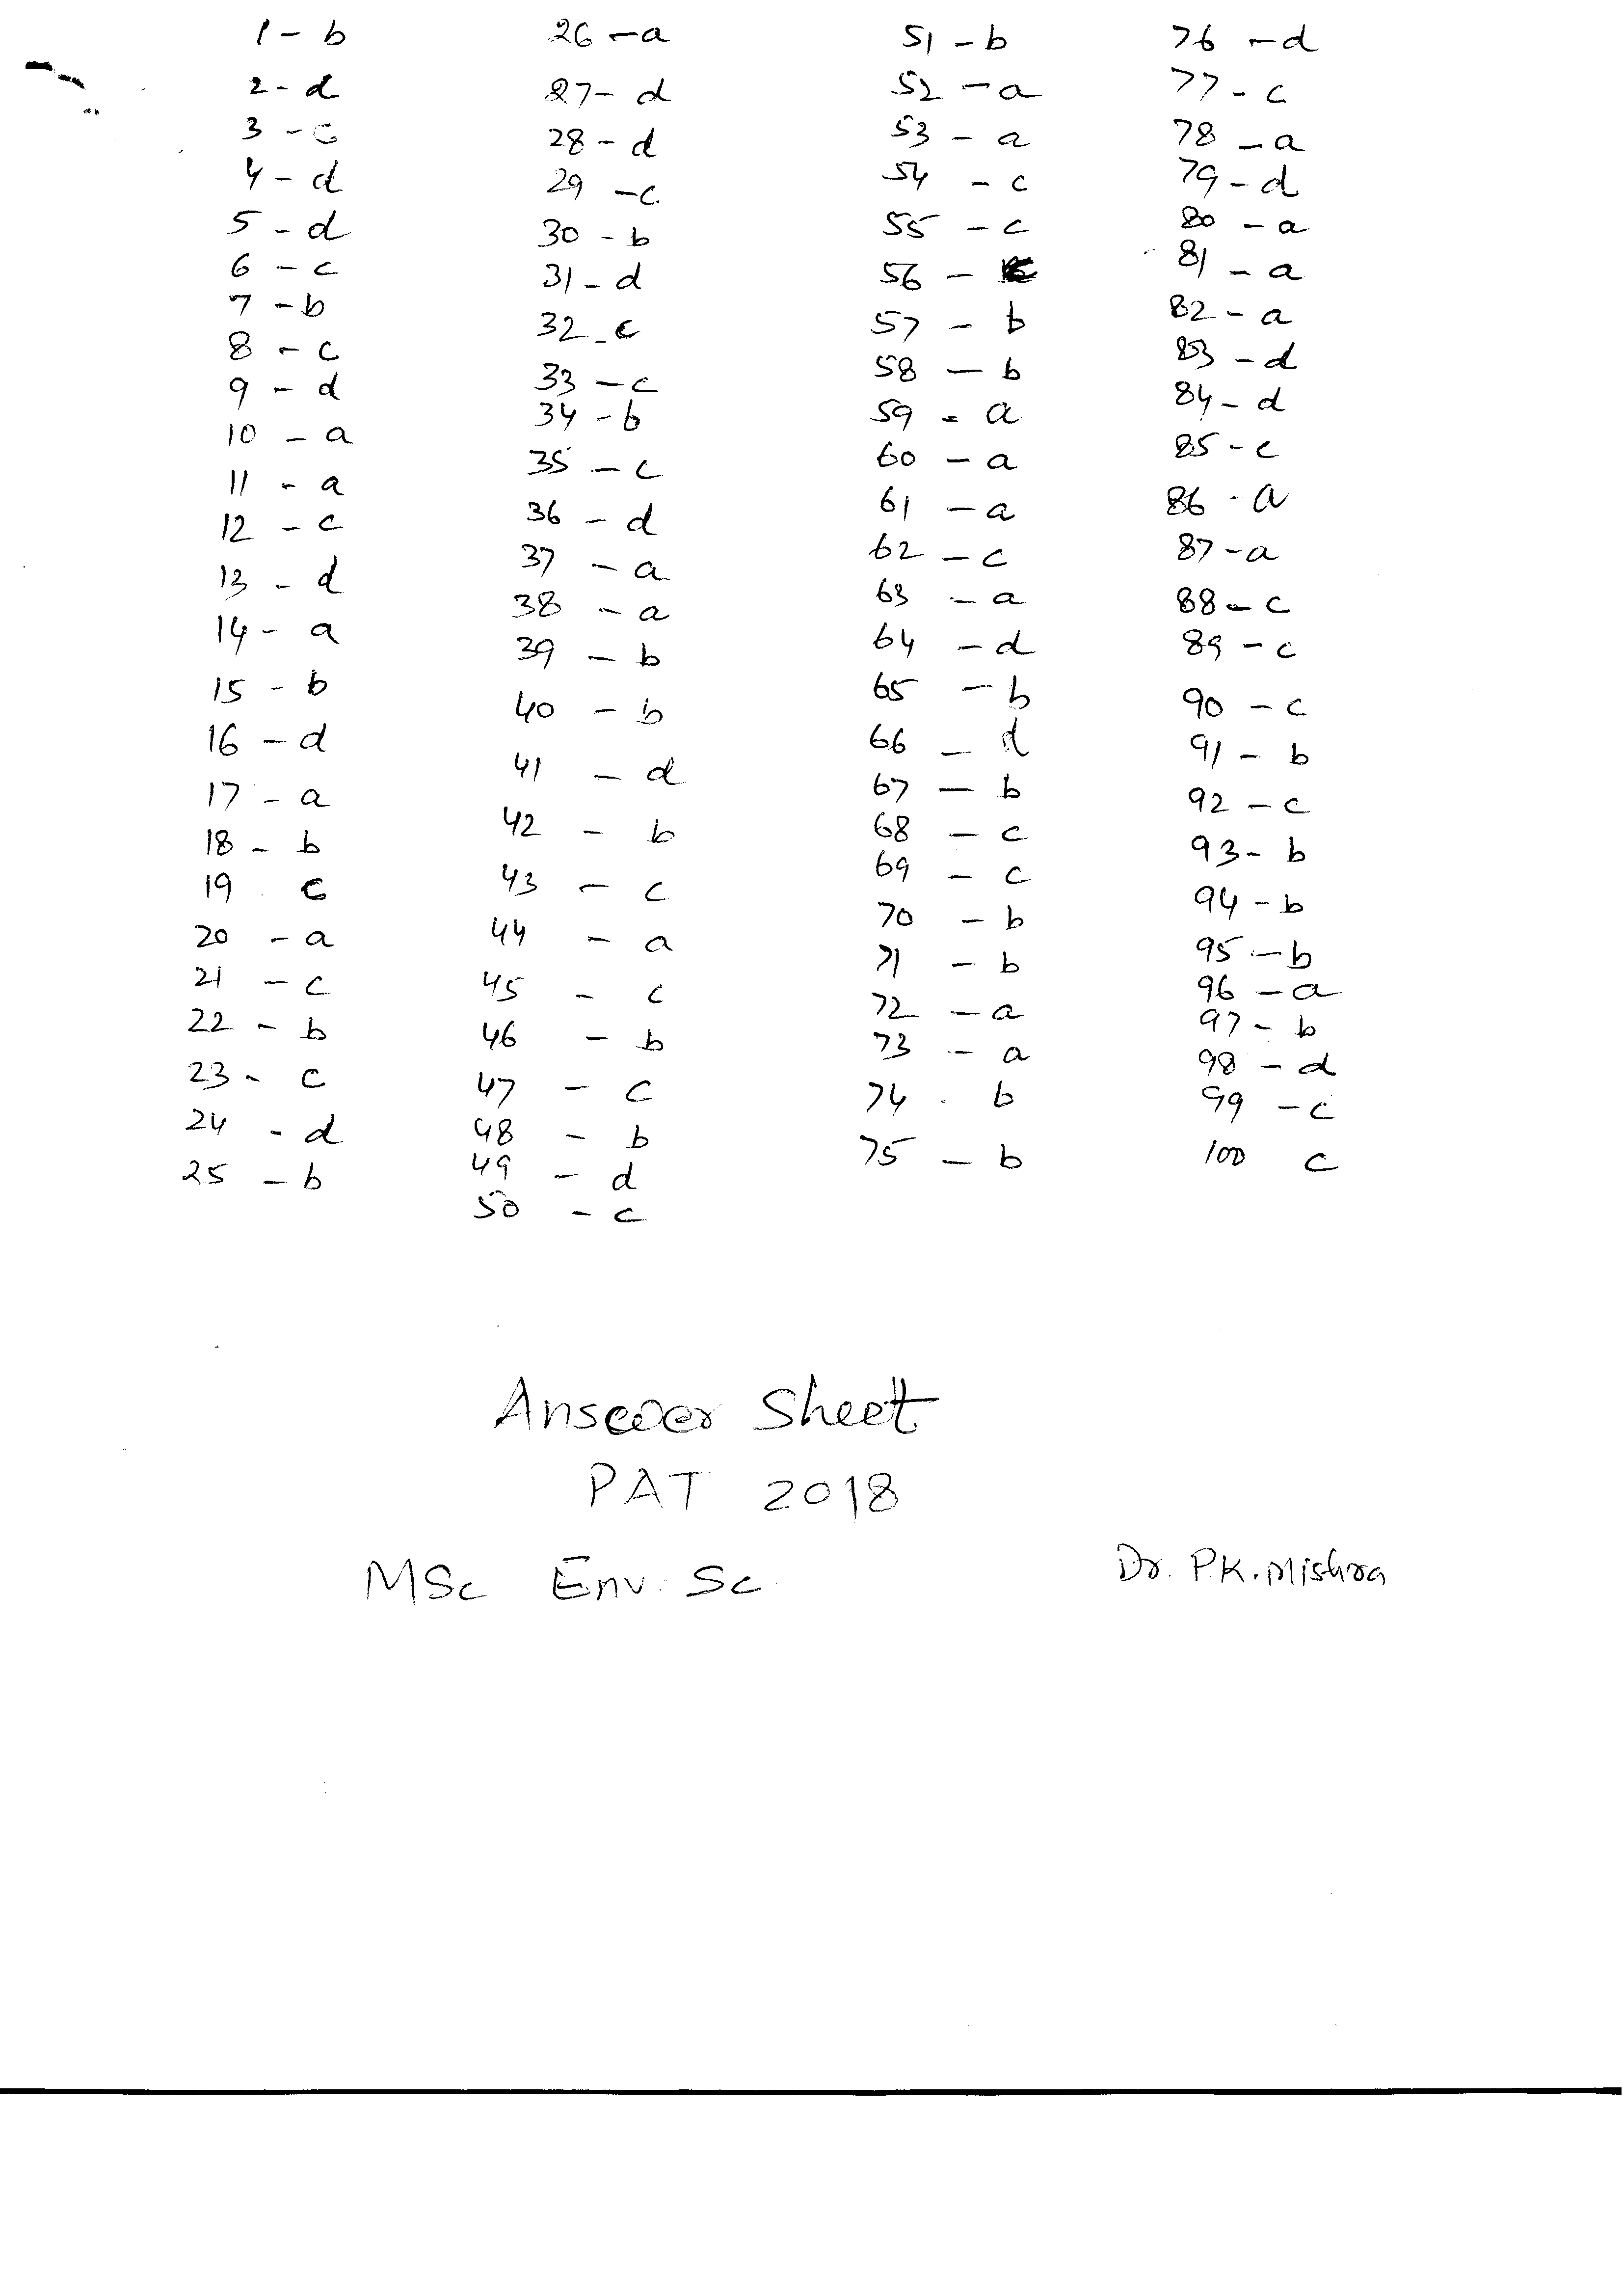 1 - b
2 - d
3 - c
4 - d
5 - d
6 - c
7 - b
8 - c
9 - d
10 - a
11 - a
12 - c
13 - d
14 - a
15 - b
16 - d
17 - a
18 - b
19 c
20 - a
21 - c
22 - b
23 - c
24 - d
25 - b
26 - a
27 - d
28 - d
29 - c
30 - b
31 - d
32 - c
33 - c
34 - b
35 - c
36 - d
37 - a
38 - a
39 - b
40 - b
41 - d
42 - b
43 - c
44 - a
45 - c
46 - b
47 - c
48 - b
49 - d
50 - c
51 - b
52 - a
53 - a
54 - c
55 - c
56 -
57 - b
58 - b
59 - a
60 - a
61 - a
62 - c
63 - a
64 - d
65 - b
66 - d
67 - b
68 - c
69 - c
70 - b
71 - b
72 - a
73 - a
74 - b
75 - b
76 - d
77 - c
78 - a
79 - d
80 - a
81 - a
82 - a
83 - d
84 - d
85 - c
86 - a
87 - a
88 - c
89 - c
90 - c
91 - b
92 - c
93 - b
94 - b
95 - b
96 - a
97 - b
98 - d
99 - c
100 c
Answer Sheet
PAT 2018
MSc Env. Sc
Dr. P.K. Mishra